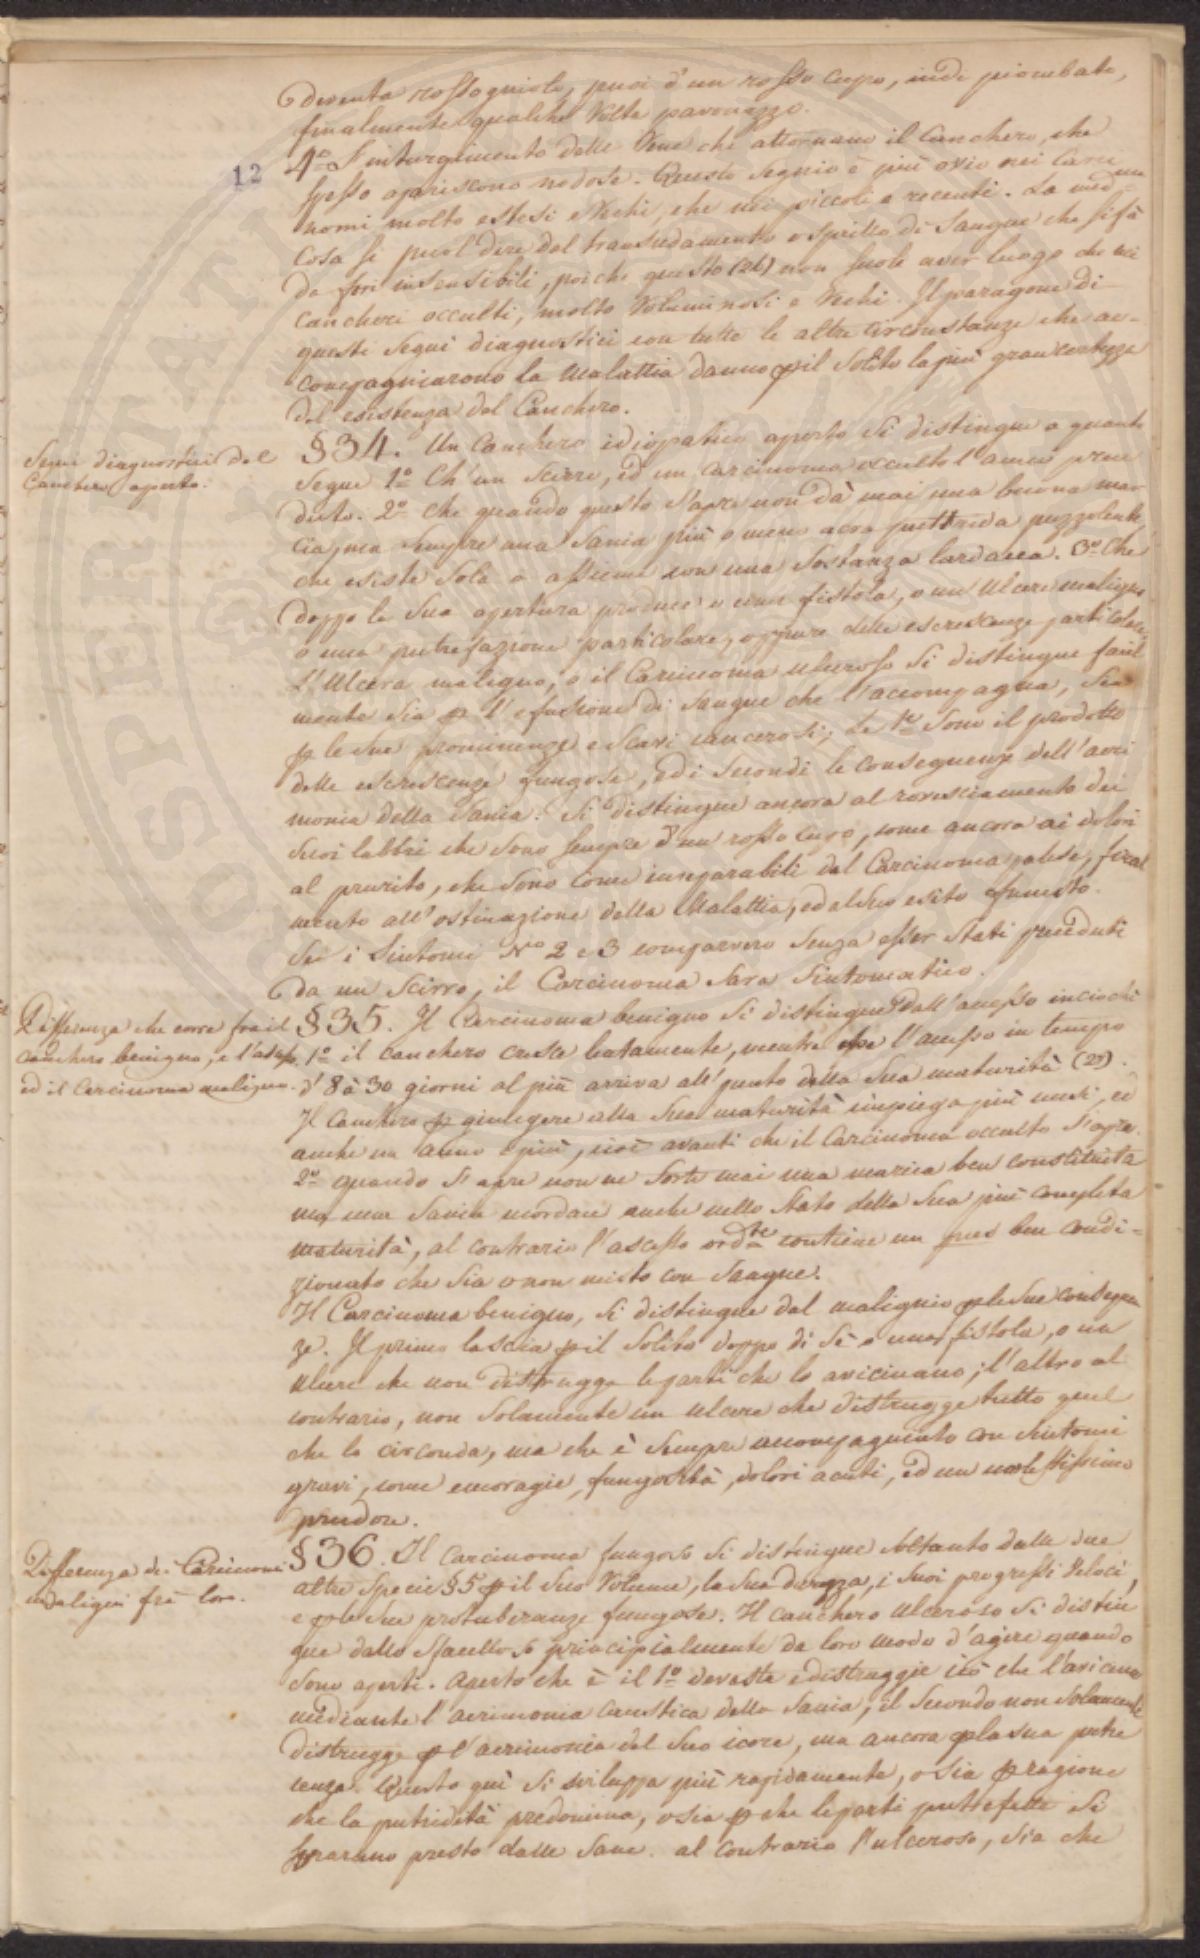 deventa rossogniolo, puoi d'un rosso cupo, indi piombato,
finalmente qualche Volta pavonazzo.
12
4º L'inturgimento delle Vene che attornano il Canchero, che
spesso apariscono nodose. Questo Segnio è più ovio nei Carci-
nomi molto estesi e Vechi, che nei piccoli e recenti. La med.ma
Cosa si puol dire del transudamento o sprillo di Sangue che si fà
da fori insensibili, poiche questo (26) non suole aver luogo che nei
Cancheri occulti, molto Voluminosi e Vechi. Il paragone di
questi Segni diagnostici con tutte le altre circonstanze che ac-
compagniarono la Malattia danno p il Solito la più gran certezza
del esistenza del Canchero.
Segni diagnostici del
Canchero aperto.
§34. Un Canchero idiopatico aperto Si distingue a quanto
Segue 1º Ch'un Scirro, ed un Carcinoma occulto l'anno prece
duto. 2º che quando questo s'apre non dà mai una buona mar
cia, ma sempre una Sania più o meno acra putrida puzzolente,
che esiste Sola o assieme con una Sostanza lardacea. 3º Che
doppo la Sua apertura produce o una fistola, o un Ulcere maligno
o una putrefazione particolare, oppure delle escrescenze particolari.
L'Ulcera maligna, o il Carcinoma ulceroso Si distingue facil
mente Sia p l'efusione di Sangue che l'accompagna, Sia
p le Sue prominenze e Scavi cancerosi; Le 1e Sono il prodotto
delle escrescenze fungose, ed i Secondi le conseguenze dell'acri
monia della Sania. Si distingue ancora al rovesciamento dei
Suoi labbri che Sono Sempre d'un rosso cupo, come ancora ai dolori
al prurito, che Sono come inseparabili dal Carcinoma palese, final
mente all'ostinazione della Malattia, ed al Suo esito funesto.
Se i Sintomi Nº 2 e 3 comparvero Senza esser Stati preceduti
da un Scirro, il Carcinoma Sara Sintomatico.
Differenza che corre fra il
canchero benigno, e l'ascesso
ed il Carcinoma maligno.
§35. Il Carcinoma benigno Si distingue dall'ascesso in ciochè
1º il canchero cresce lentamente, mentre che l'ascesso in tempo
d'8 à 30 giorni al più arriva all'punto della Sua maturità (27).
Il Canchero p giungere alla Sua maturità impiega più mesi, ed
anche un anno e più, cioè avanti che il Carcinoma occulto S'apre.
2º quando S'apre non ne Sorte mai una marcia ben constituita
ma una Sania mordace anche nello Stato della Sua più completa
maturità, al contrario l'ascesso ord.te contiene un pus ben condi-
zionato che Sia o non misto con Sangue.
Il Carcinoma benigno, Si distingue dal malignio p le Sue conseguen
ze. Il primo lascia p il Solito doppo di Sè o una fistola, o un
Ulcere che non distrugge le parti che lo avicinano; l'altro al
contrario, non Solamente un ulcere che distrugge tutto quel
che lo circonda, ma che è Sempre accompagniato con Sintomi
gravi, come emoragie, fungosità, dolori acuti, ed un molestissimo
prudore.
Differenza dei Carcinomi
maligni frà loro.
§36. Il Carcinoma fungoso Si distingue Soltanto dalle due
altre Specie §5 p il Suo Volume, la Sua durezza, i Suoi progressi Veloci,
e p le Sue protuberanze fungose. Il canchero Ulceroso Si distin
gue dallo Sfaceloso principialmente da loro modo d'agire quando
Sono aperti. Aperto che è il 1º devasta e distruggie ciò che l'avicina
mediante l'acrimonia caustica della Sania, il Secondo non Solamente
distrugge p l'acrimonia del Suo icore, ma ancora p la Sua putre
cenza. Questo qui Si sviluppa più rapidamente, o Sia p ragione
che la putridità predomina, o Sia p che le parti putrefatte Si
Separano presto dalle Sane. al contrario l'ulceroso, Sia che